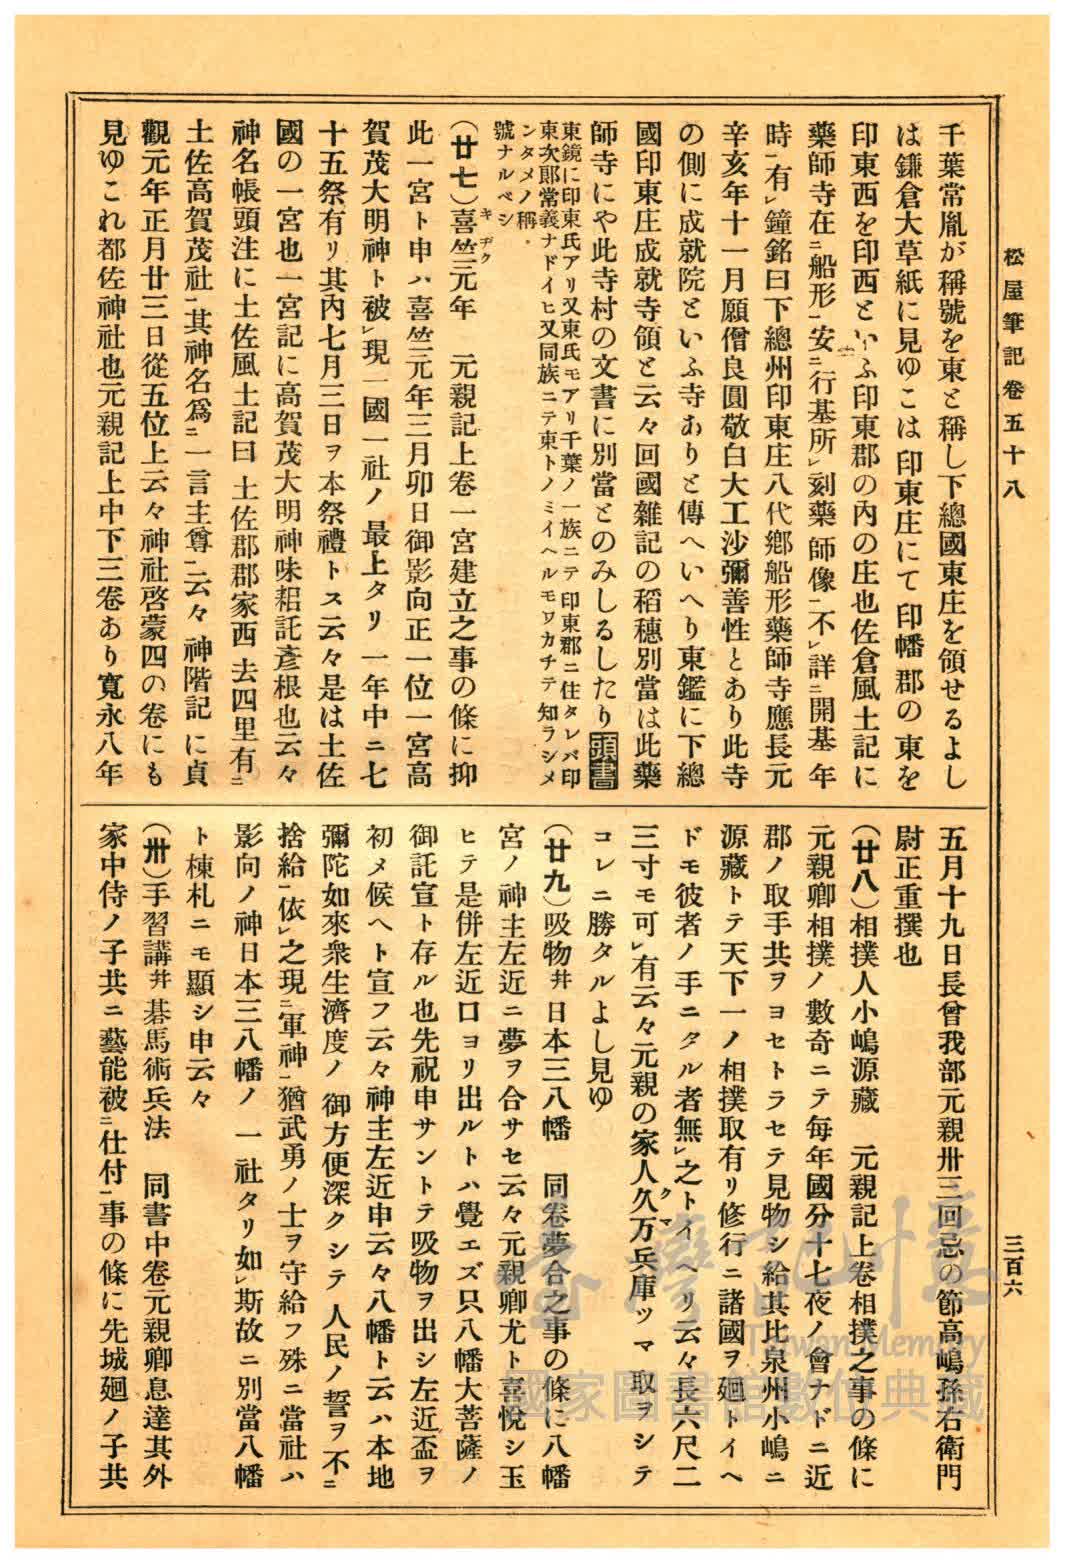 松屋筆記卷五十八
三百六
千葉常胤が稱號を東と稱し下總國東庄を領せるよし
は鎌倉大草紙に見ゆこは印東庄にて印幡郡の東を
印東西を印西といふ印東郡の內の庄也佐倉風土記に
藥師寺在ニ船形一安ニ行基所レ刻藥師像一不レ詳ニ開基年
時一有レ鐘銘曰下總州印東庄八代鄕船形藥師寺應長元
辛亥年十一月願僧良圓敬白大工沙彌善性とあり此寺
の側に成就院といふ寺ありと傳へいへり東鑑に下總
國印東庄成就寺領と云々回國雜記の稻穗別當は此藥
師寺にや此寺村の文書に別當とのみしるしたり頭書
東鏡に印東氏アリ又東氏モアリ千葉ノ一族ニテ印東郡ニ住タレバ印
東次郎常義ナドイヒ又同族ニテ東トノミイヘルモワカチテ知ラシメ
ンタメノ稱
號ナルベシ
(廿七)喜竺元年 元親記上卷一宮建立之事の條に抑
キヂク
此一宮ト申ハ喜竺元年三月卯日御影向正一位一宮高
賀茂大明神ト被レ現一國一社ノ最上タリ一年中ニ七
十五祭有リ其內七月三日ヲ本祭禮トス云々是は土佐
國の一宮也一宮記に高賀茂大明神味耜託彥根也云々
神名帳頭注に土佐風土記曰土佐郡郡家西去四里有ニ
土佐高賀茂社一其神名爲ニ一言主尊一云々神階記に貞
觀元年正月廿三日從五位上云々神社啓蒙四の卷にも
見ゆこれ都佐神社也元親記上中下三卷あり寬永八年
五月十九日長曾我部元親卅三回忌の節高嶋孫右衛門
尉正重撰也
(廿八)相撲人小嶋源藏 元親記上卷相撲之事の條に
元親卿相撲ノ數奇ニテ每年國分十七夜ノ會ナドニ近
郡ノ取手共ヲヨセトラセテ見物シ給其比泉州小嶋ニ
源藏トテ天下一ノ相撲取有リ修行ニ諸國ヲ廻トイヘ
ドモ彼者ノ手ニタル者無レ之トイヘリ云々長六尺二
三寸モ可レ有云々元親の家人久万兵庫ツマ取ヲシテ
クマ
コレニ勝タルよし見ゆ
(廿九)吸物幷日本三八幡 同卷夢合之事の條に八幡
宮ノ神主左近ニ夢ヲ合サセ云々元親卿尤ト喜悅シ玉
ヒテ是併左近口ヨリ出ルトハ覺エズ只八幡大菩薩ノ
御託宣ト存ル也先祝申サントテ吸物ヲ出シ左近盃ヲ
初メ候ヘト宣フ云々神主左近申云々八幡ト云ハ本地
彌陀如來衆生濟度ノ御方便深クシテ人民ノ誓ヲ不ニ
捨給一依レ之現ニ軍神一猶武勇ノ士ヲ守給フ殊ニ當社ハ
影向ノ神日本三八幡ノ一社タリ如レ斯故ニ別當八幡
ト棟札ニモ顯シ申云々
(卅)手習講幷碁馬術兵法 同書中卷元親卿息達其外
家中侍ノ子共ニ藝能被ニ仕付一事の條に先城廻ノ子共
臺灣記憶
Taiwan Memory
國家圖書館數位典藏